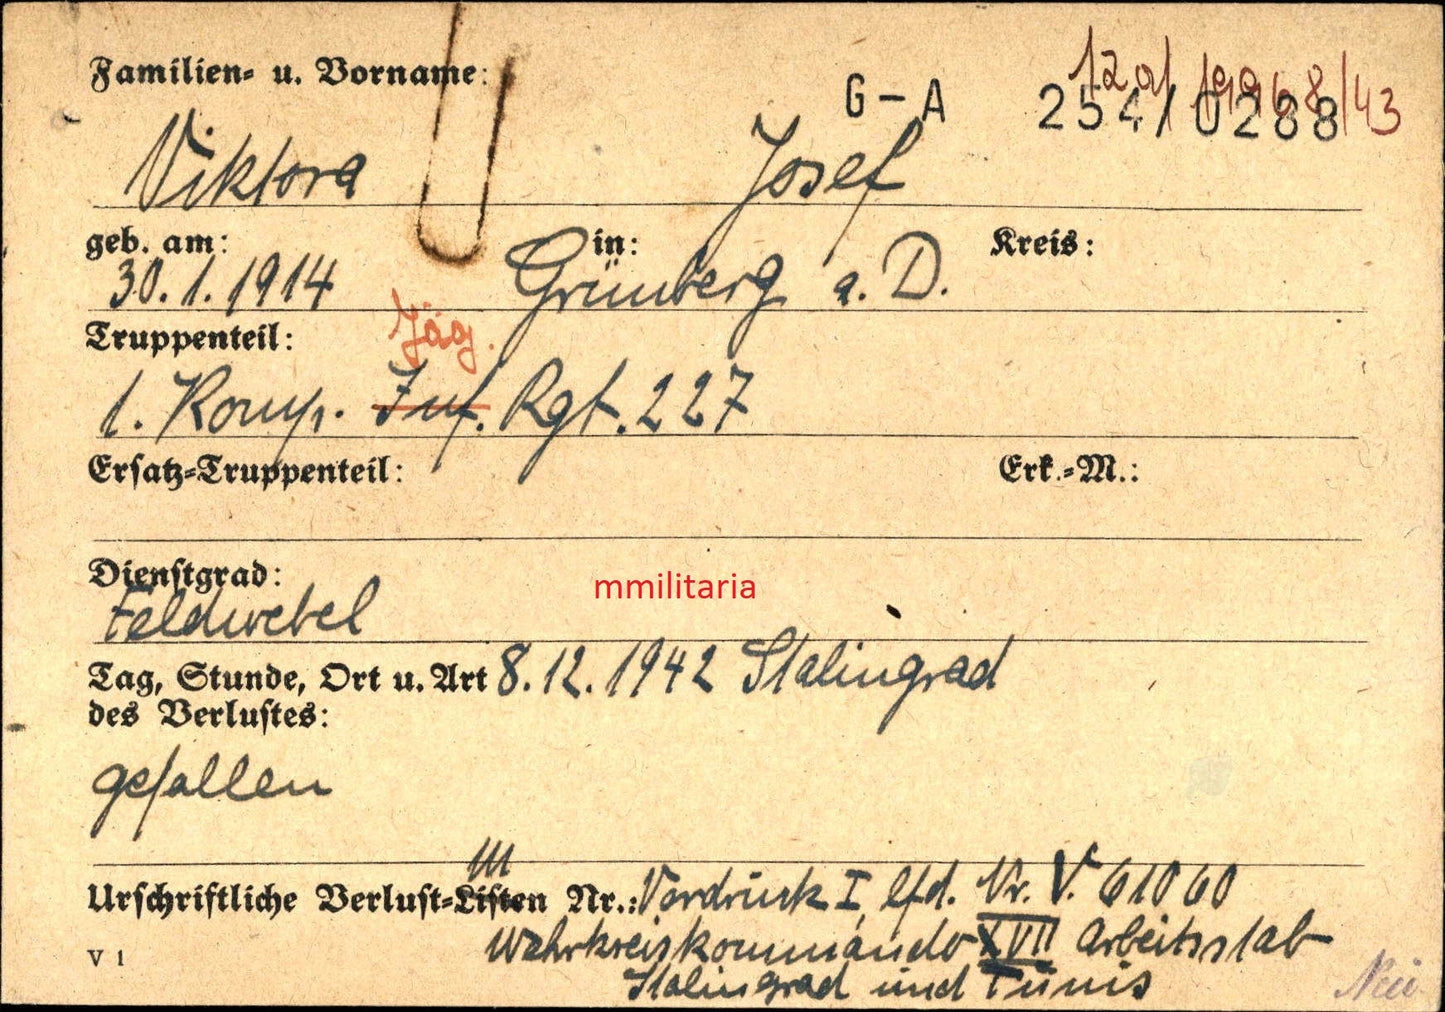 Familien- u. Vorname:
G-A 254/0288
Viktora Josef
geb. am: in: Kreis:
30.1.1914 Grünberg a. D.
Truppenteil: Jäg.
1. Komp. Inf. Rgt. 227
Ersatz-Truppenteil: Erk.-M.:
Dienstgrad:
Feldwebel
mmilitaria
Tag, Stunde, Ort u. Art 8.12.1942 Stalingrad
des Verlustes:
gefallen
Urschriftliche Verlust-Listen Nr.: Vordruck I, lfd. Nr. V. 61060
V 1 Wehrkreiskommando XVII Arbeitsstab
Stalingrad und Tunis